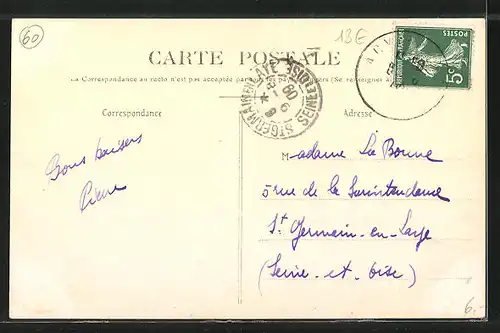 60
13€
CARTE POSTALE
La Correspondance au recto n'est pas acceptée par tous les pays étrangers (Se renseigner à
Correspondance
Adresse
ST GERMAIN EN LAYE SEINE ET OISE
POSTES
REPUBLIQUE FRANÇAISE
5c
Bons baisers
Pierre
Madame La Bonne
5 rue de la Surintendance
St Germain-en-Laye
(Seine-et-Oise)
6.-